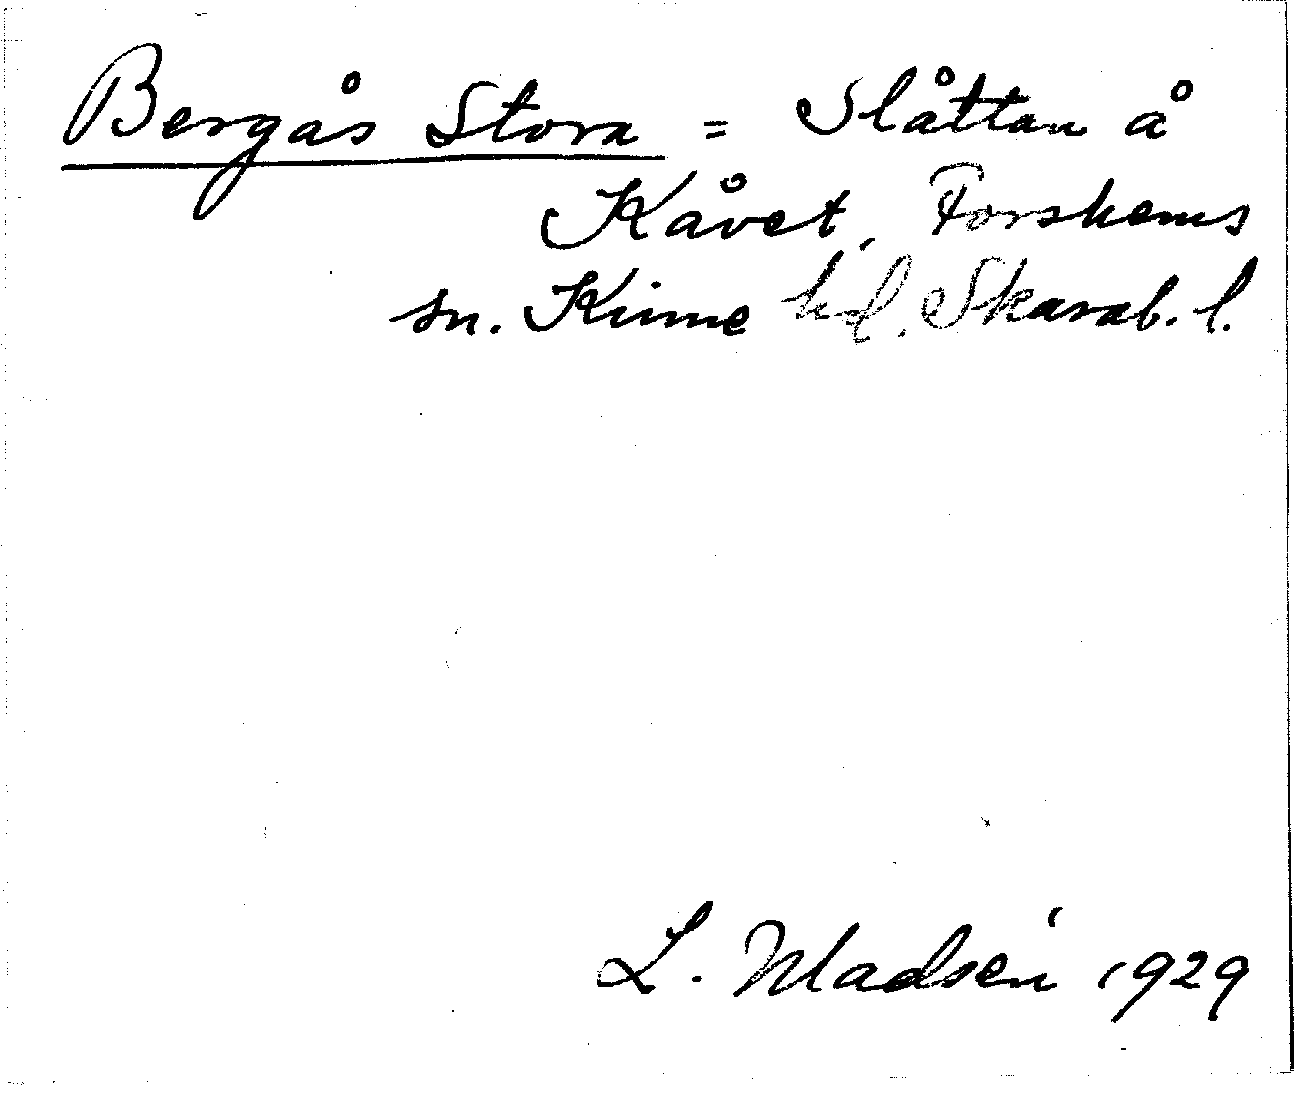 Bergås Stora = Slåttan å
Kåvet, Forshems
sn. Kinne hd. Skarab. l.
L. Madsén 1929